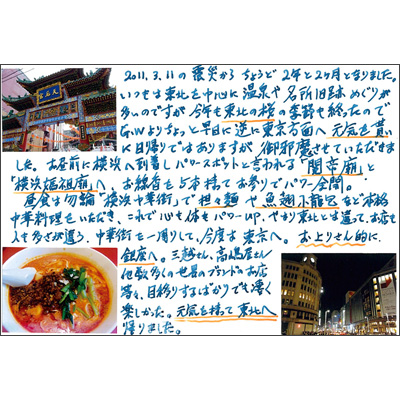 2011.3.11の震災からちょうど2年と2ヶ月となりました。
いつもは東北を中心に温泉や名所旧跡めぐりが
多いのですが今年も東北の桜の季節も終ったので
G.Wよりちょっと早目に逆に東京方面へ元気を貰い
に日帰りではありますが御邪魔させていただきま
した。お昼前に横浜へ到着しパワースポットと言われる「関帝廟」と
「横浜媽祖廟」へ、お線香も5本持ってお参りでパワー全開。
昼食は勿論「横浜中華街」で担々麺や魚翅小籠包など本格
中華料理をいただき、これで心も体もパワーUP、やはり東北とは違って、お店も
人も多さが違う、中華街を一周りして、今度は東京へ。お上りさん的に、
銀座へ。三越さん、高島屋さん
他数多くの世界のブランドのお店
等も、目移りするばかりでも凄く
楽しかった。元気を持って東北へ
帰りました。